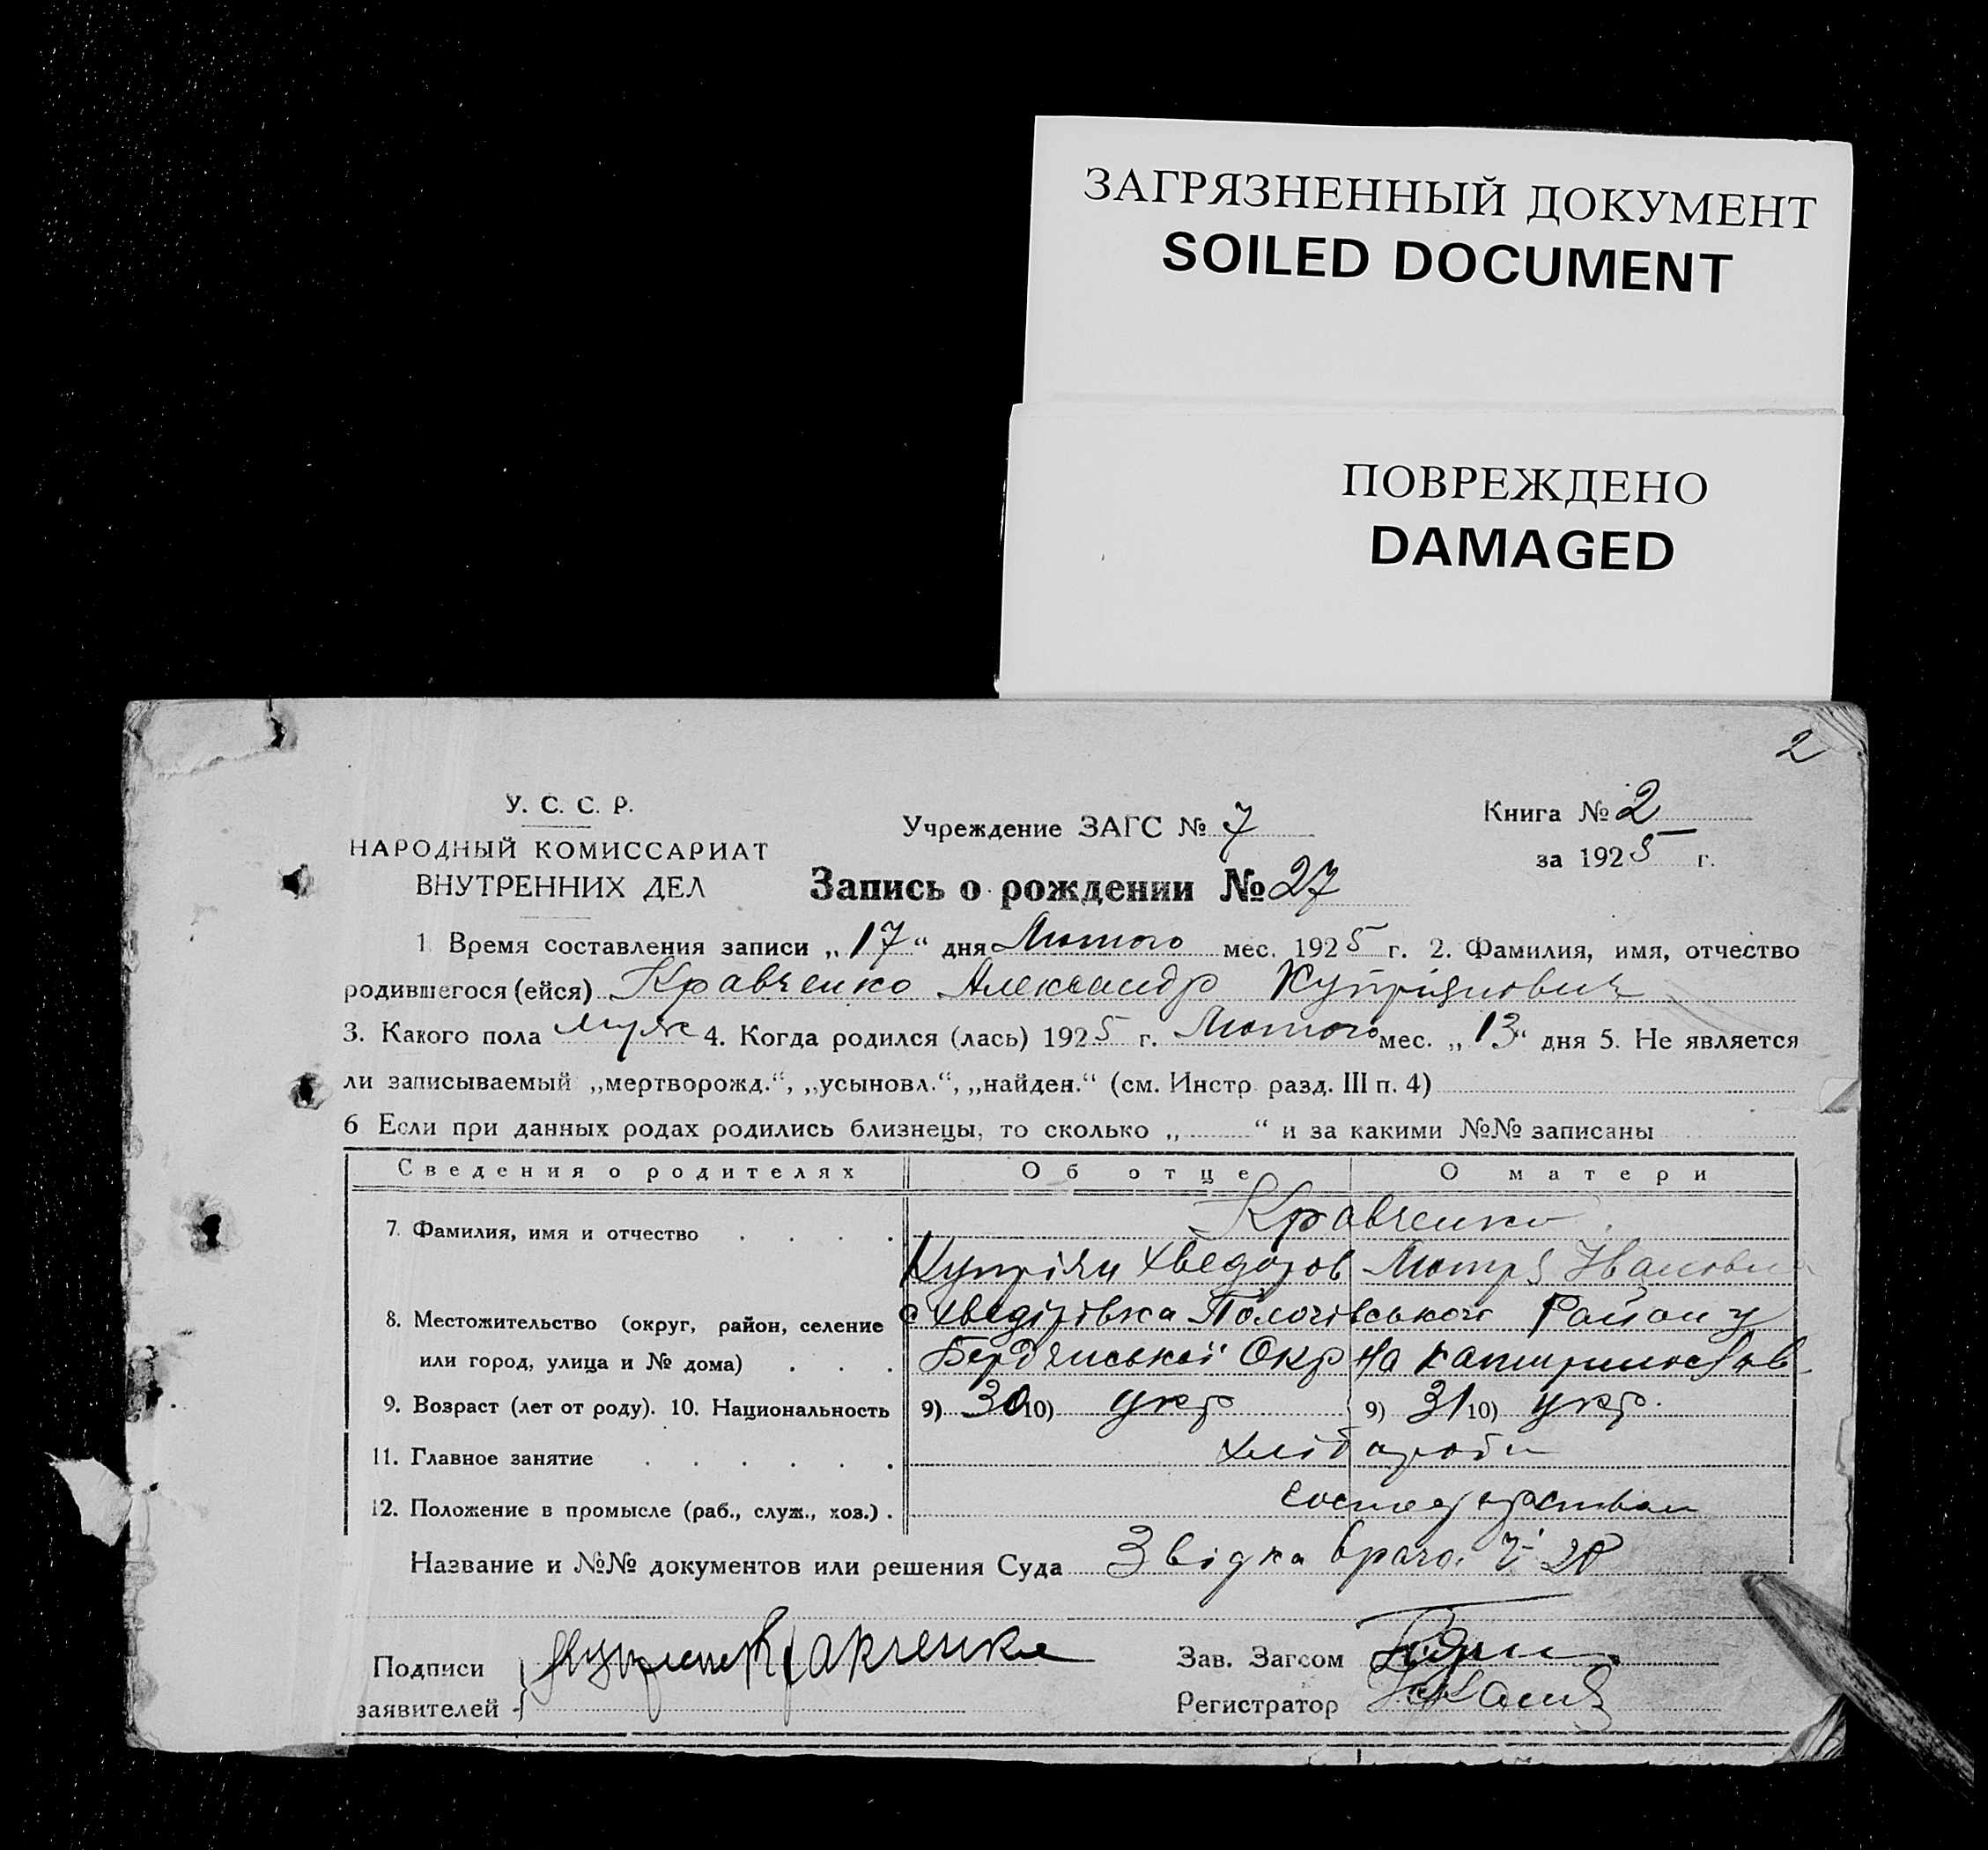 ЗАГРЯЗНЕННЫЙ ДОКУМЕНТ
SOILED DOCUMENT
ПОВРЕЖДЕНО
DAMAGED
2
У. С. С. Р.
НАРОДНЫЙ КОМИССАРИАТ
ВНУТРЕННИХ ДЕЛ
Учреждение ЗАГС № 7
Книга № 2
за 1925 г.
Запись о рождении № 27
1. Время составления записи „17“ дня Лютого мес. 1925 г. 2. Фамилия, имя, отчество
родившегося (ейся) Кравченко Александр Купріянович
3. Какого пола муж 4. Когда родился (лась) 1925 г. Лютого мес. „13“ дня 5. Не является
ли записываемый „мертворожд.“, „усыновл.“, „найден.“ (см. Инстр. разд. III п. 4)
6 Если при данных родах родились близнецы, то сколько „ “ и за какими №№ записаны
Сведения о родителях Об отце О матери
7. Фамилия, имя и отчество Кравченко
Купріян Хведоров Мотря Ивановна
8. Местожительство (округ, район, селение с Хведірівка Пологівського Району
или город, улица и № дома) Бердянської Окр На
9. Возраст (лет от роду). 10. Национальность 9) 30 10) укр 9) 31 10) укр.
11. Главное занятие хлібароби
12. Положение в промысле (раб., служ., хоз.)
Название и №№ документов или решения Суда Звідка
Подписи
заявителей Кравченко
Зав. Загсом
Регистратор